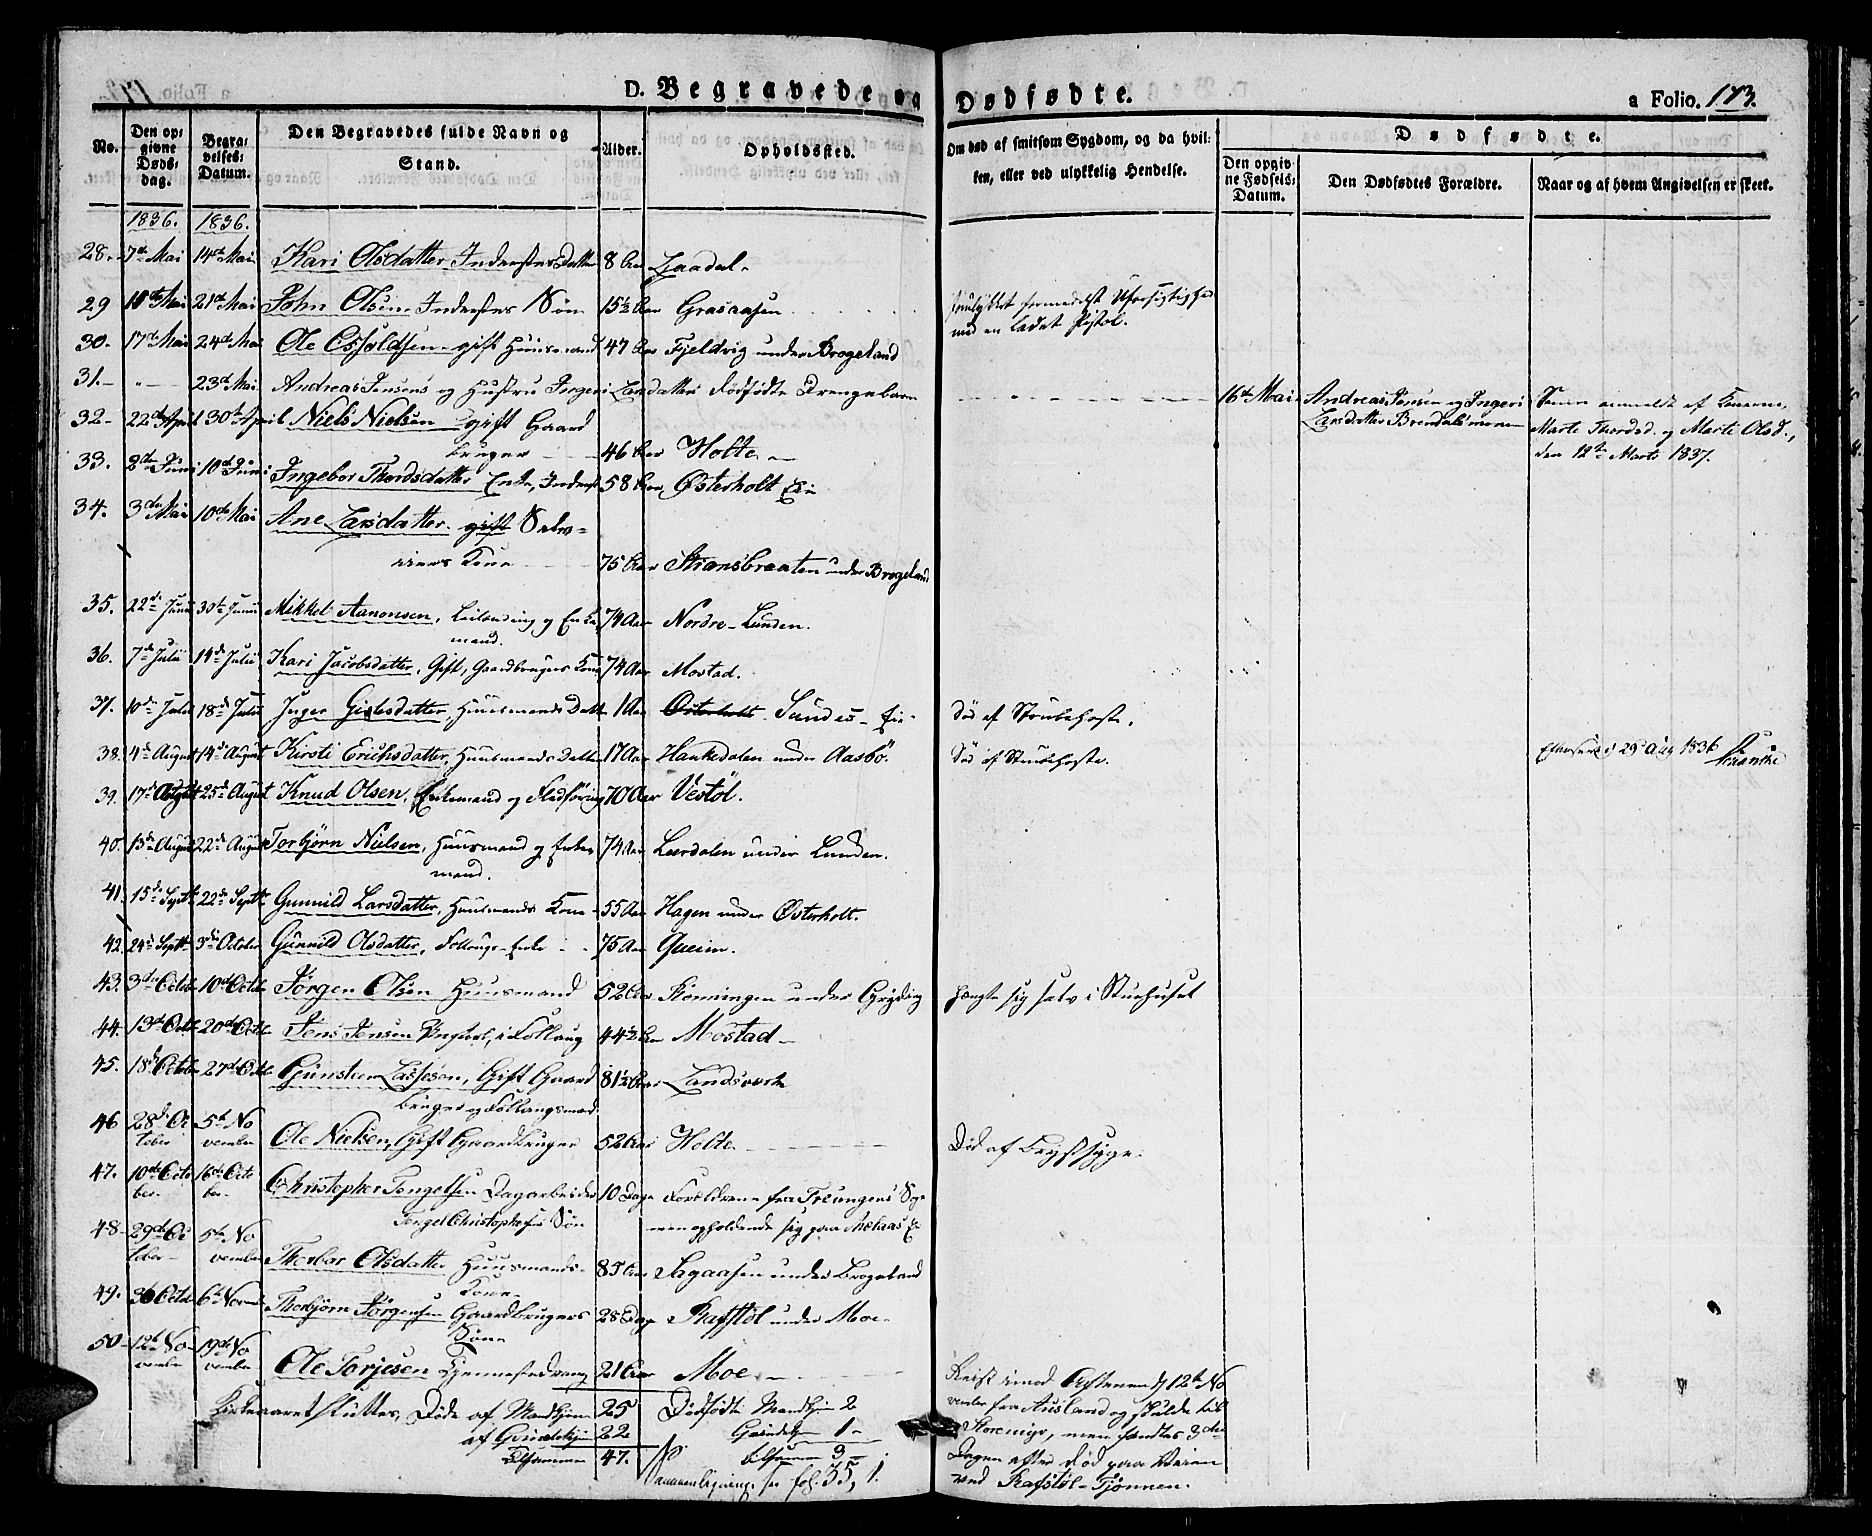 D. Begravede og Dødfødte. a Folio. 173.
No. Den opgivne Dødsdag. Begravelses-Datum. Den Begravedes fulde Navn og Stand. Alder. Opholdssted. Om død af smitsom Sygdom, og da hvilken, eller ved ulykkelig Hendelse. Dødfødte.
Den opgivne Fødsels-Datum. Den Dødfødtes Forældre. Naar og af hvem Angivelsen er skeet.
1836. 1836.
28. 7de Mai 14de Mai Kari Olsdatter Inderstes Datter 8 Aar Laadal
29 21de Mai John Olsen Inderstes Søn 15½ Aar Grasaasen
med en ladet Pistol.
30. 17de Mai 24de Mai Ole gift Huusmand 47 Aar Fjeldvig under Brogeland
31. 23de Mai Andreas Jensens og Hustru Ingeri Larsdatters dødfødte Drengebarn 16de Mai Andreas Jensen og Ingeri
Larsdatter anmeldt af Konerne,
Marte Thordsd. og Marte Olsd.,
den 12te Marts 1837.
32. 22de April 30te April Niels Nielsen gift Gaard
bruger 46 Aar Holte
33. 2den Juni 10de Juni Ingebor Thordsdatter Enke, Inderst 58 Aar Østerholt Eie
34. 3die Mai 10de Mai Ane Larsdatter gift
Kone 75 Aar under Brogeland
35. 22de Juni 30te Junii Mikkel Aanonsen, Leilænding og Enke
mand. 74 Aar Nordre-Lunden.
36. 7de Julii 14de Julii Kari Jacobsdatter, Gift, Gaardbrugers Kone 74 Aar Mostad.
37. 10de Julii 18de Julii Inger Huusmands Datter 1 Aar Østerholt Sundes-Eie Død af Strubehoste.
38. 4de August 14de August Kirsti Erichsdatter, Huusmands Datter 17 Aar Hankedalen under Aasbø. Død af Strubehoste. 29 Aug 1836
39. 17de August 25de August Knud Olsen, Enkemand og Fladføring 70 Aar Vestøl.
40. 13de August 22de August Torbjørn Nielsen, Huusmand og Enke
mand. 74 Aar Leerdalen under Lunden.
41. 15de Septr 22de Septr Gunnild Larsdatter, Huusmands Kone 55 Aar Hagen under Østerholt.
42. 24de Septr 3die October Gunnild Olsdatter, Follaugs-Enke 75 Aar Queim.
43. 3die Octob 10de Octob Jørgen Olsen Huusmand 52 Aar Rønningen under hængte sig selv i Stuehuset
44. 13de Octb 20de Octb Jens Jensen i Follaug 44½ Aar Mostad
45. 18de Octb 27de Octb Gunsten Lassesen, Gift Gaard
bruger og Follaugsmand 81½ Aar Landsverk
46 28de Oc
tober 5te No
vember Ole Nielsen, Gift Gaardbruger 52 Aar Holte Død af Brystsyge.
47. 10de Octo
ber 16de Octo
ber Christopher Tengelsen Dagarbeider
Tengel Christophersens Søn 10 Dage Forældrene fra Treungens Sogn
men opholdende sig paa
48 29de Oc
tober 5te No
vember Thorbor Olsdatter Huusmands-
Kone 85 Aar Sagaasen under Brogeland
49. 30 Octb 6te Novemb Thorbjørn Jørgensen Gaardbrugers
Søn 28 Dage Rafstøl under Moe
50 12te No
vember 19de No
vember Ole Torjesen Tjenestedreng 21 Aar Moe Reist imod Aftenen d. 12te No
vember fra Ausland og skulde til
Storemyr, men fandtes 3die
Dagen efter død paa Veien
ved Rafstøl-Tjønnen.
Kirkeaaret sluttes, Døde af Mandkjøn 25 Dødfødte Mandkjøn 2
af Qvindekjøn 22 Qvindekjøn 1
tilsammen 47. tilsammen 3
Sammenligning see fol. 35, 1.